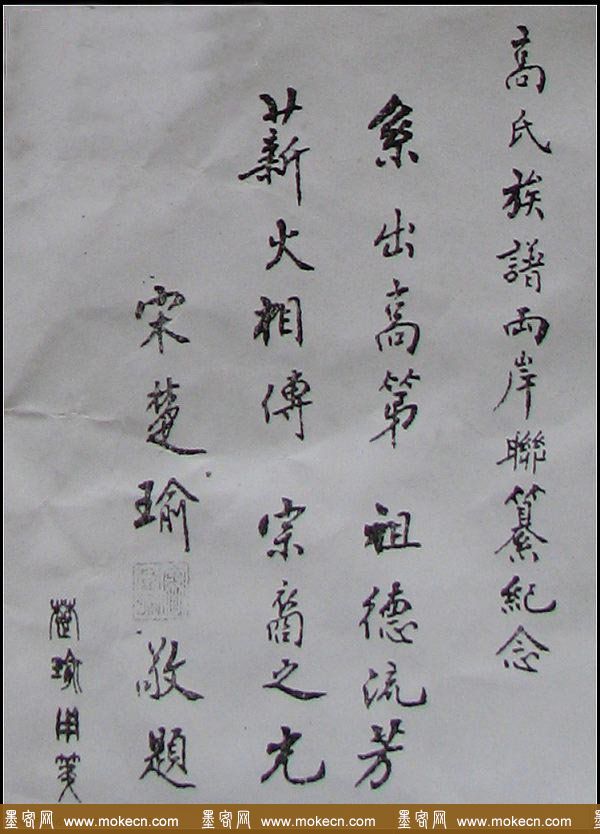 高氏族譜兩岸聯纂紀念
系出高第 祖德流芳
薪火相傳 宗裔之光
宋楚瑜 敬題
楚瑜用箋
墨客网 www.mokecn.com 墨客网 www.mokecn.com 墨客网 www.mokecn.com